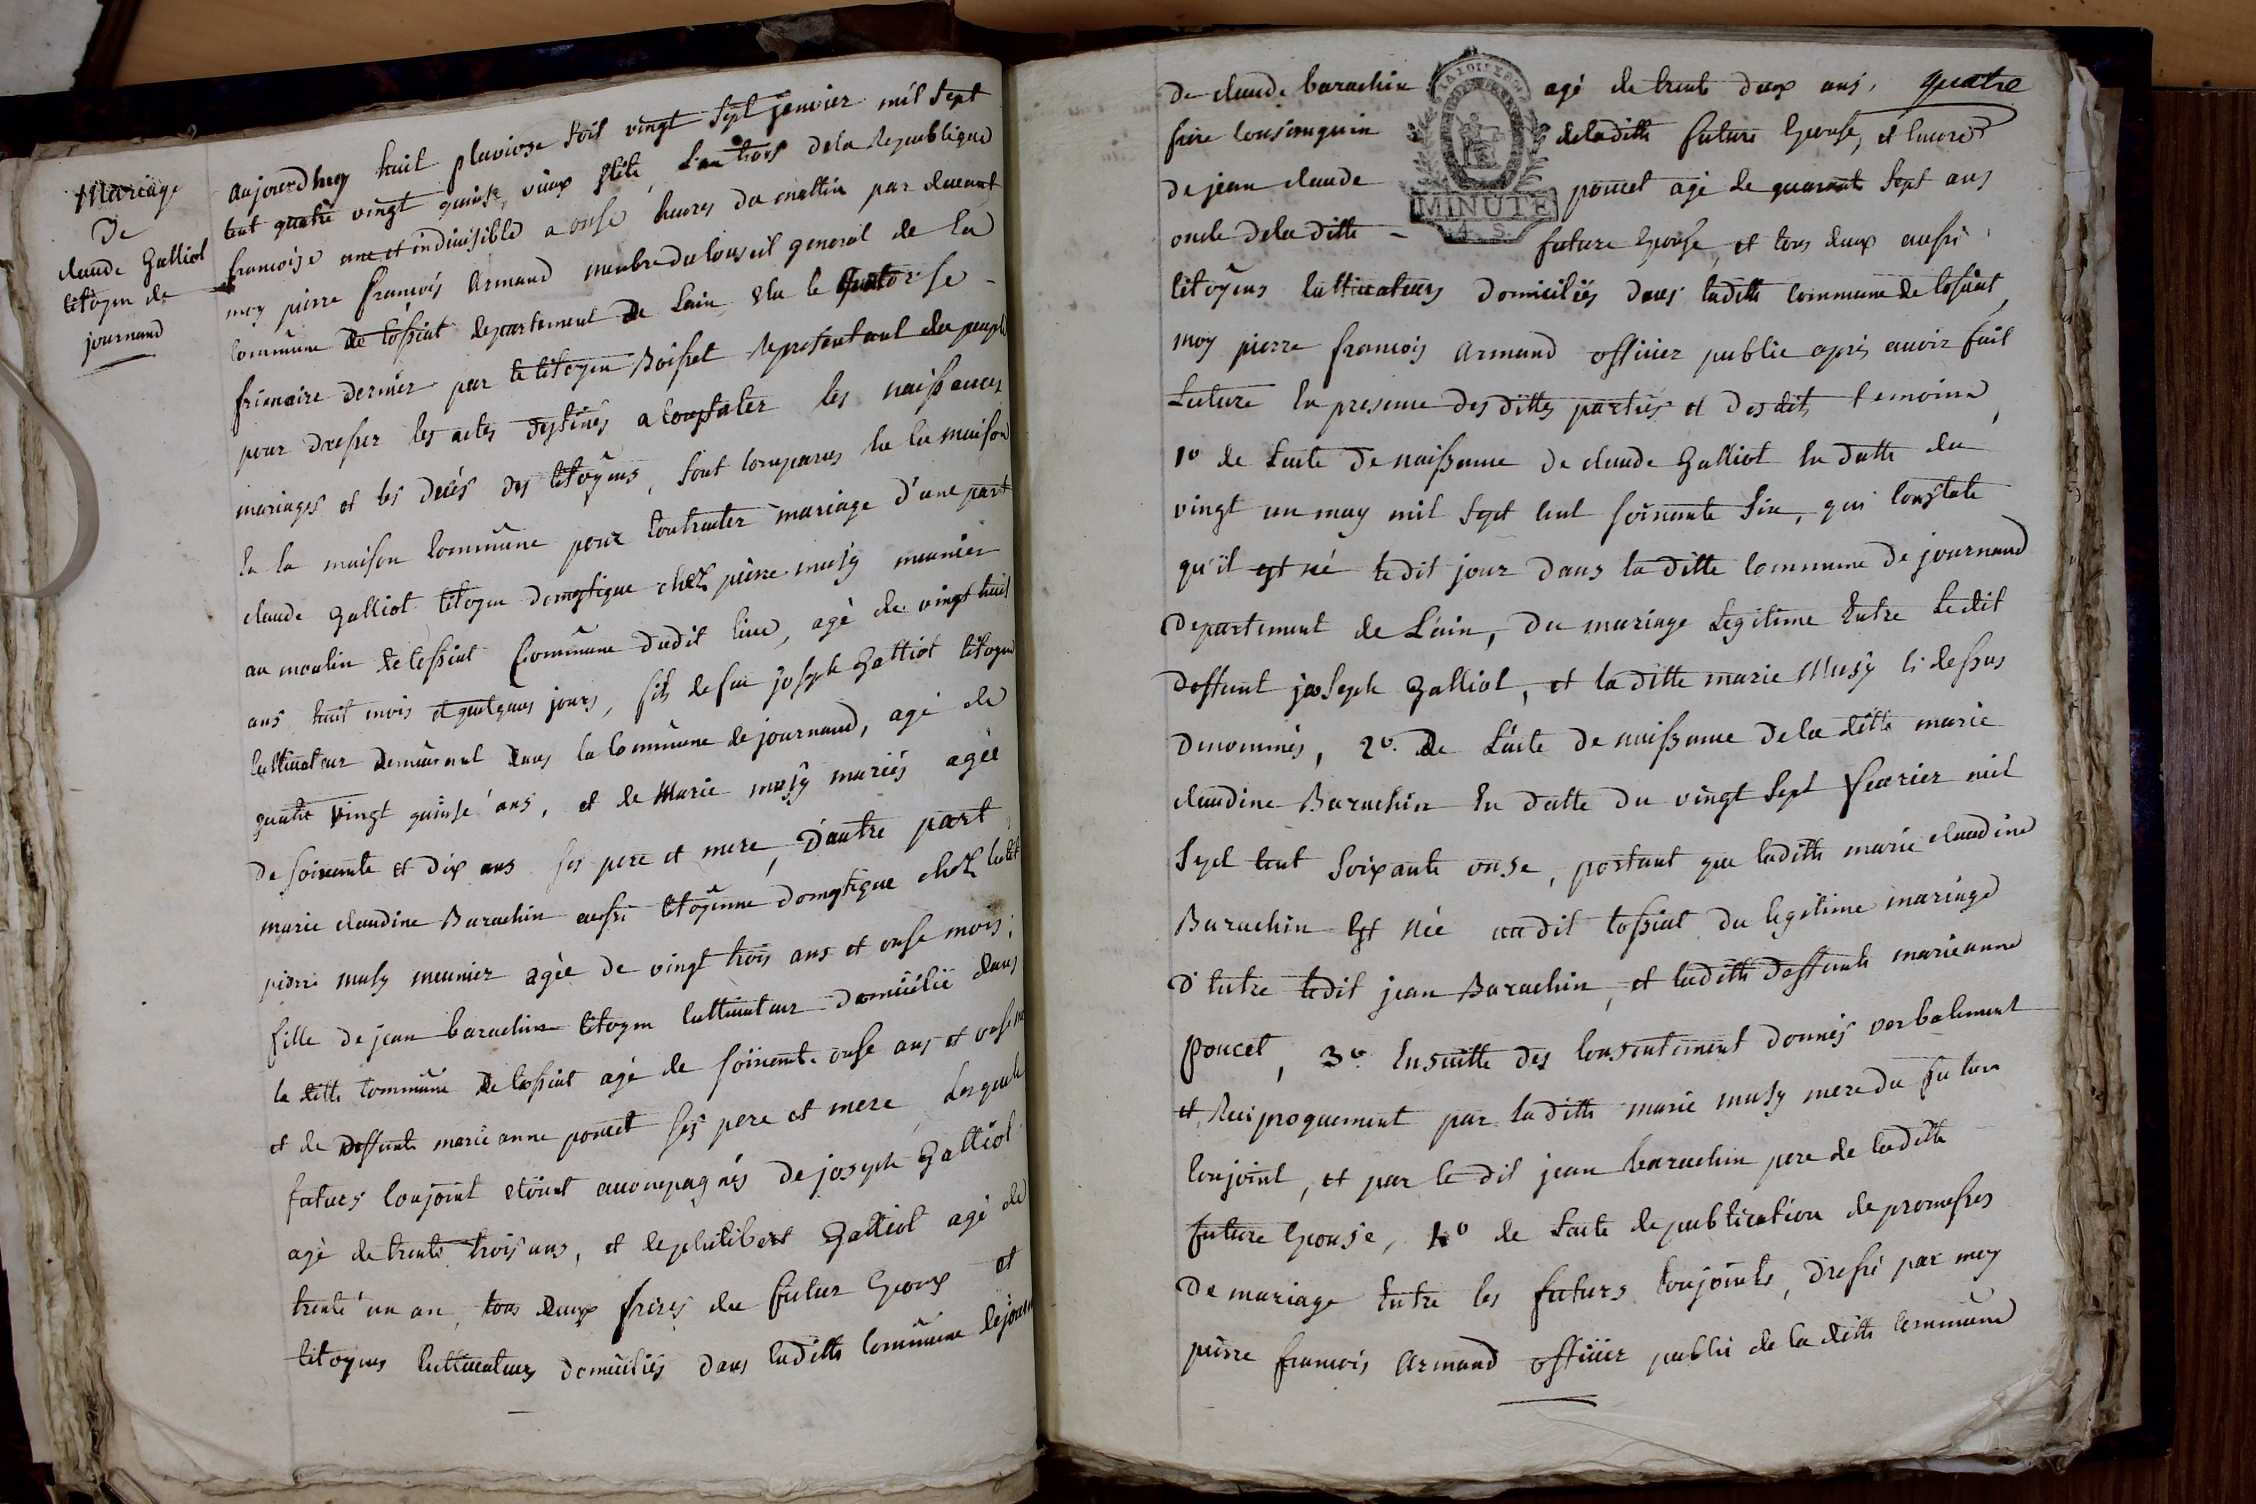 Mariage
De
claude Galliot
citoyen de
journand
aujourdhuy huit pluviose soit vingt sept janvier mil sept
cent quatre vingt quinse, vieux stile, L'an trois dela Republique
francoise une et indivisible a onse heures du mattin par devant
moy pierre francois Armand menbre du conseil general de la
commune de tossiat departement de Lain elu le quatorse
frimaire dernier par le citoyen Boisset representant du peuple
pour dresser les actes destinés a constater les naissances
mariages et les decés des citoyens, sont comparus en la maison
en la maison commune pour contracter mariage d'une part
claude Galliot citoyen domestique chez pierre musy meunier
au moulin de tossiat commune dudit lieu, agé de vingt huit
ans huit mois et quelques jours, fils de feu joseph Galliot citoyen
cultivateur demeurant dans la commune de journand, agé de
quatre vingt quinse ans, et de Marie musy mariés agée
de soixante et dix ans ses pere et mere, D'autre part
marie claudine Barachin aussi citoyenne domestique chez ledit
pierre musy meunier agée de vingt trois ans et onse mois,
fille de jean barachin citoyen cultivateur domicilié dans
la ditte commune de tossiat agé de soixente onse ans et onse
et de deffunte marie anne poncet ses pere et mere, Lesquels
futurs conjoint etoient accompagnés de joseph Galliot
agé de trente trois ans, et de philibert Galliot agé de
trente un an, tous deux freres du futur Epoux et
citoyens cultivateurs domiciliés dans laditte commune de journ
De claude barachin agé de trente deux ans, quatre
frere consanguin deladitte future Epouse, et encore
de jean claude poncet agé de quarante sept ans
MINUTE
4. S.
oncle dela ditte future Epouse, et tous deux aussi
citoyens cultivateurs domiciliés dans laditte commune de tossiat,
moy pierre francois Armand officier public apres avoir fait
Lecture En presence des dittes parties et desdits temoins,
1º de Lacte de naissance de claude Galliot En datte du
vingt un may mil sept cent soixante six, qui constate
qu'il est né ledit jour dans la ditte commune de journand
Departement de L'ain, Du mariage Legitime Entre Ledit
deffunt joseph Galliot, et la ditte marie Musy ci dessus
denommés, 2º. de L'acte de naissance de la ditte marie
claudine Barachin En datte du vingt sept fevrier mil
sept cent soixante onse, portant que laditte marie claudine
Barachin Est Née audit tossiat du legitime mariage
d'entre ledit jean Barachin, et laditte deffunte marieanne
poncet, 3º. Ensuitte des consentement donnés verbalement
et reciproquement par laditte marie musy mere du futur
conjoint, et par le dit jean barachin pere de laditte
future Epouse, 4º de Lacte de publication de promesses
De mariage Entre les futurs conjoints, dressé par moy
pierre francois Armand officier public de la ditte commune